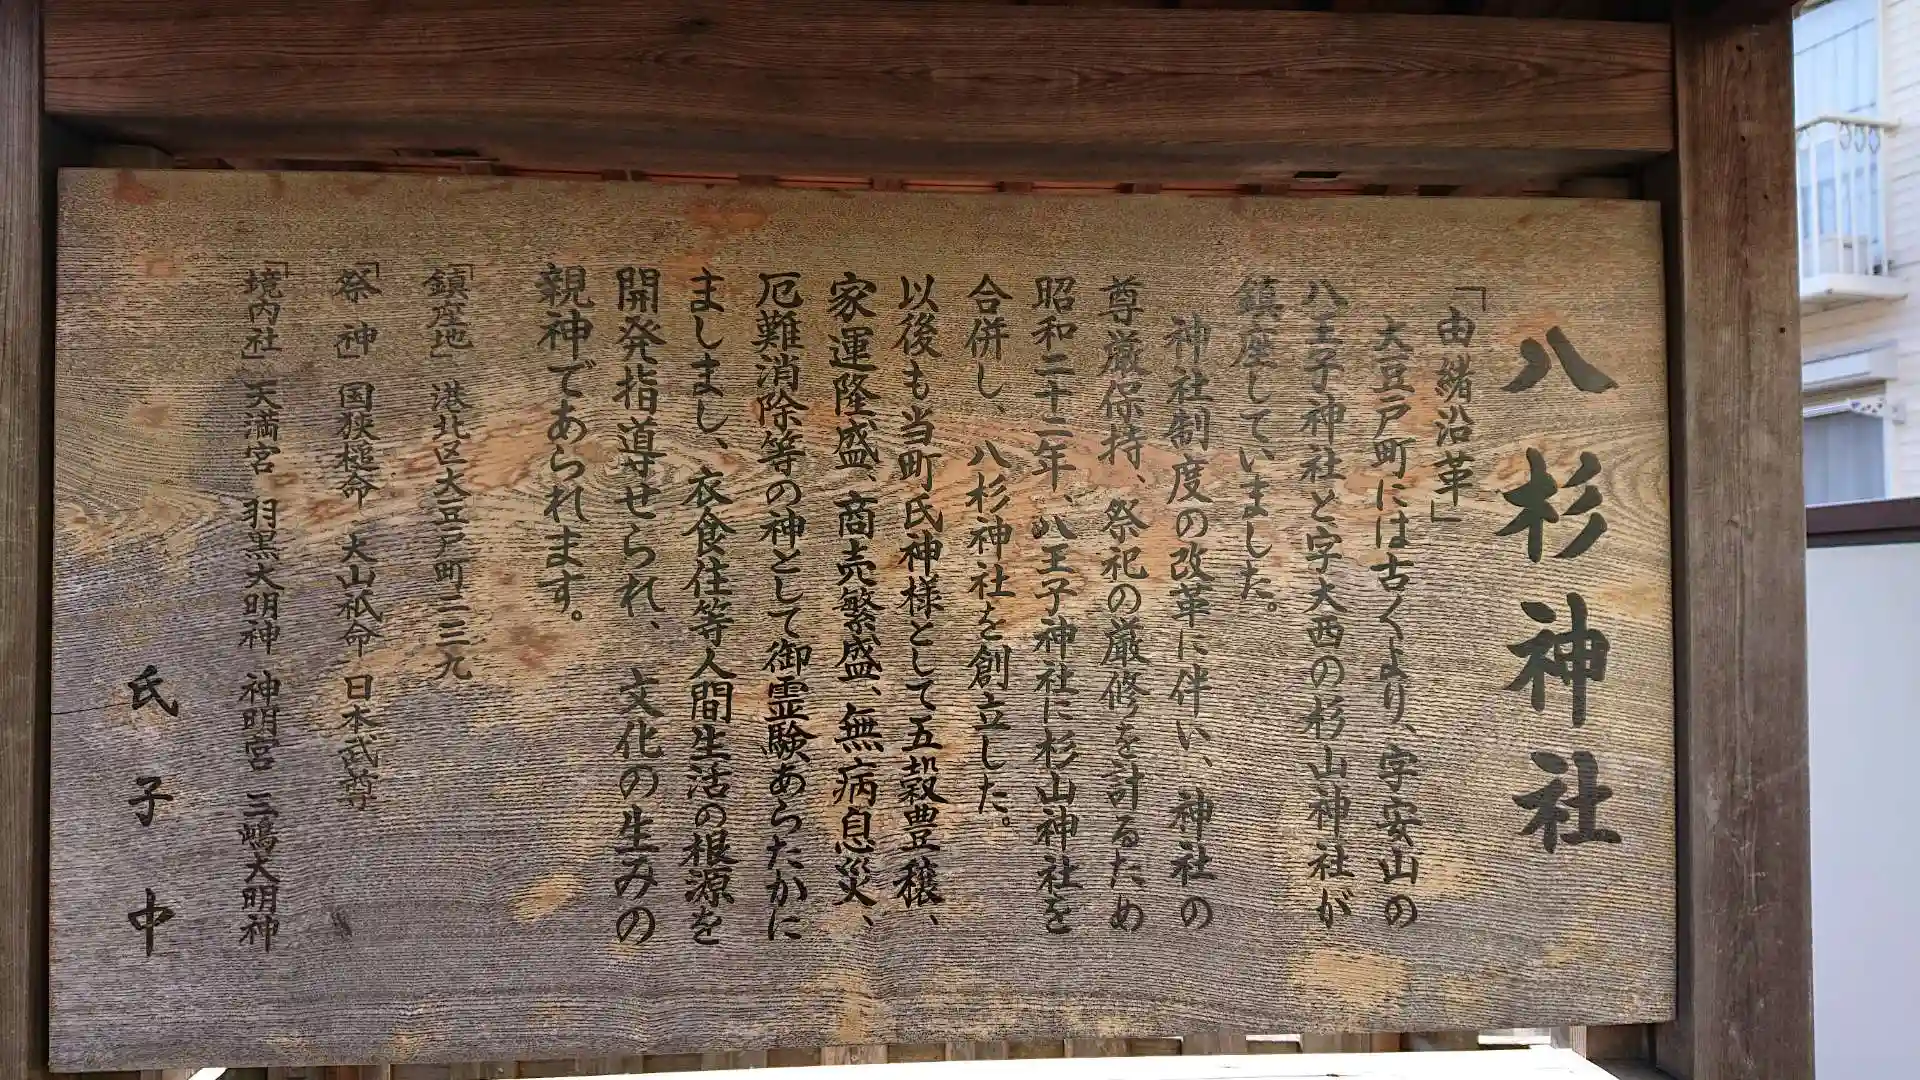 八杉神社
「由緒沿革」
大豆戸町には古くより、字安山の
八王子神社と字大西の杉山神社が
鎮座していました。
神社制度の改革に伴い、神社の
尊厳保持、祭祀の厳修を計るため
昭和三十三年、八王子神社に杉山神社を
合併し、八杉神社を創立した。
以後も当町氏神様として五穀豊穣、
家運隆盛、商売繁盛、無病息災、
厄難消除等の神として御霊験あらたかに
ましまし、衣食住等人間生活の根源を
開発指導せられ、文化の生みの
親神であられます。
「鎮座地」港北区大豆戸町二三九
「祭神」国狭槌命 大山祇命 日本武尊
「境内社」天満宮 羽黒大明神 神明宮 三嶋大明神
氏子中